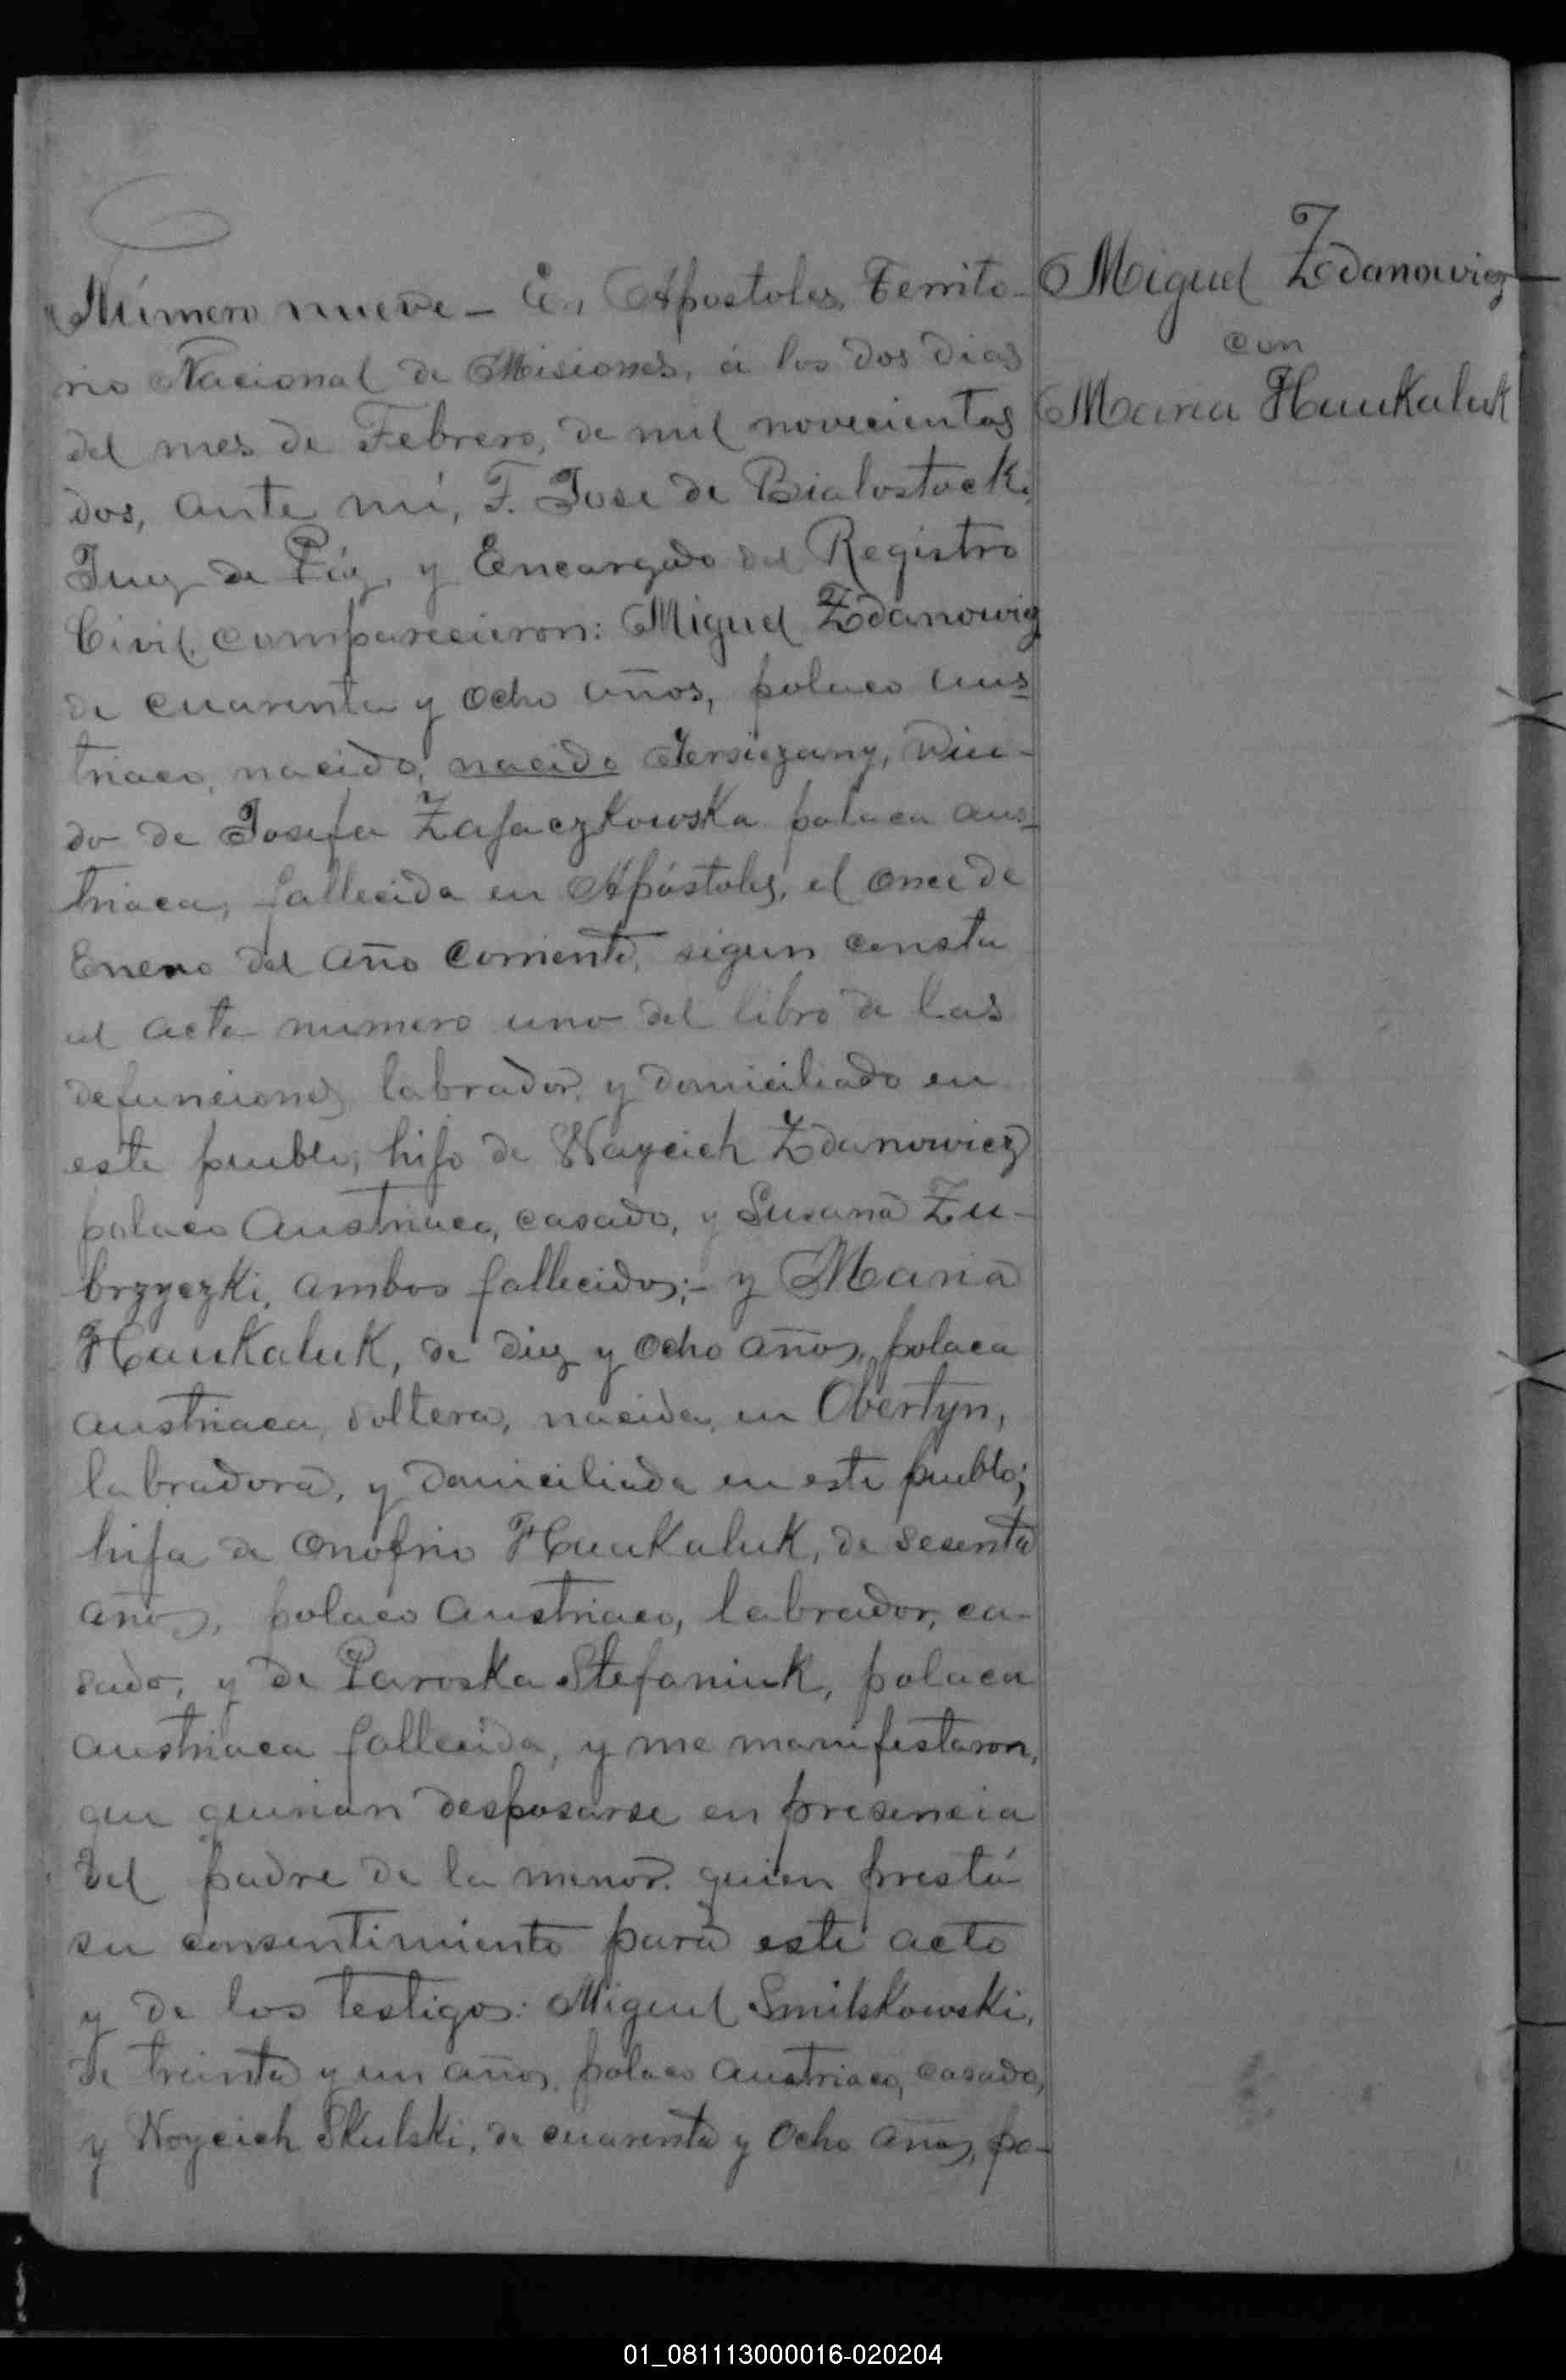 Número nueve - En Apostoles, Territo-
rio Nacional de Misiones, á los dos dias
del mes de Febrero, de mil novecientos
dos, ante mi, F. Jose de Bialostocki,
Juez de Páz, y Encargado del Registro
Civil, comparecieron: Miguel Zdanowicz
de cuarenta y ocho años, polaco aus-
triaco, nacido, nacido Jersiezany, viu-
do de Josefa Zajaczkowska polaca aus-
triaca, fallecida en Apóstoles, el once de
Enero del año corriente, sigun consta
el acta numero uno del libro de las
defunciones, labrador, y domiciliado en
este pueblo, hijo de Wayciech Zdanowicz
polaco austriaco, casado, y Susana Zu-
brzyczki, ambos fallecidos;- y Maria
Haukaluk, de diez y ocho años, polaca
austriaca, soltera, nacida, en Obertyn,
labradora, y domiciliada en este pueblo;
hija de Onofrio Haukaluk, de sesenta
años, polaco austriaco, labrador, ca-
sado, y de Paroska Stefaniuk, polaca
austriaca fallecida, y me manifestaron,
que querian desposarse en presencia
del padre de la menor, quien prestá
su consentimiento para este acto
y de los testigos: Miguel Smilskowski,
de treinta y un años, polaco austriaco, casado,
y Woyciech Skulski, de cuarenta y ocho años, po-
Miguel Zdanowicz
con
Maria Haukaluk
01_081113000016-020204